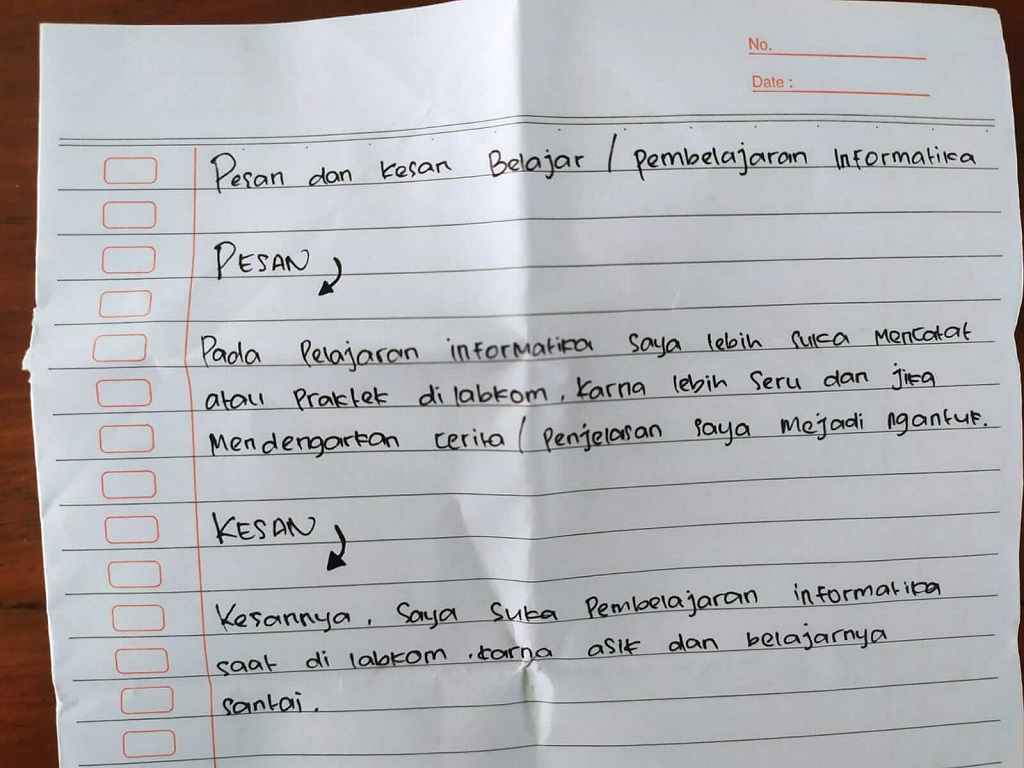 No.
Date :
Pesan dan kesan Belajar / pembelajaran Informatika
PESAN
Pada Pelajaran informatika saya lebih suka mencatat
atau Praktek di labkom, karna lebih seru dan jika
mendengarkan cerita / penjelasan saya mejadi ngantuk.
KESAN
Kesannya, saya suka pembelajaran informatika
saat di labkom . karna asik dan belajarnya
santai.